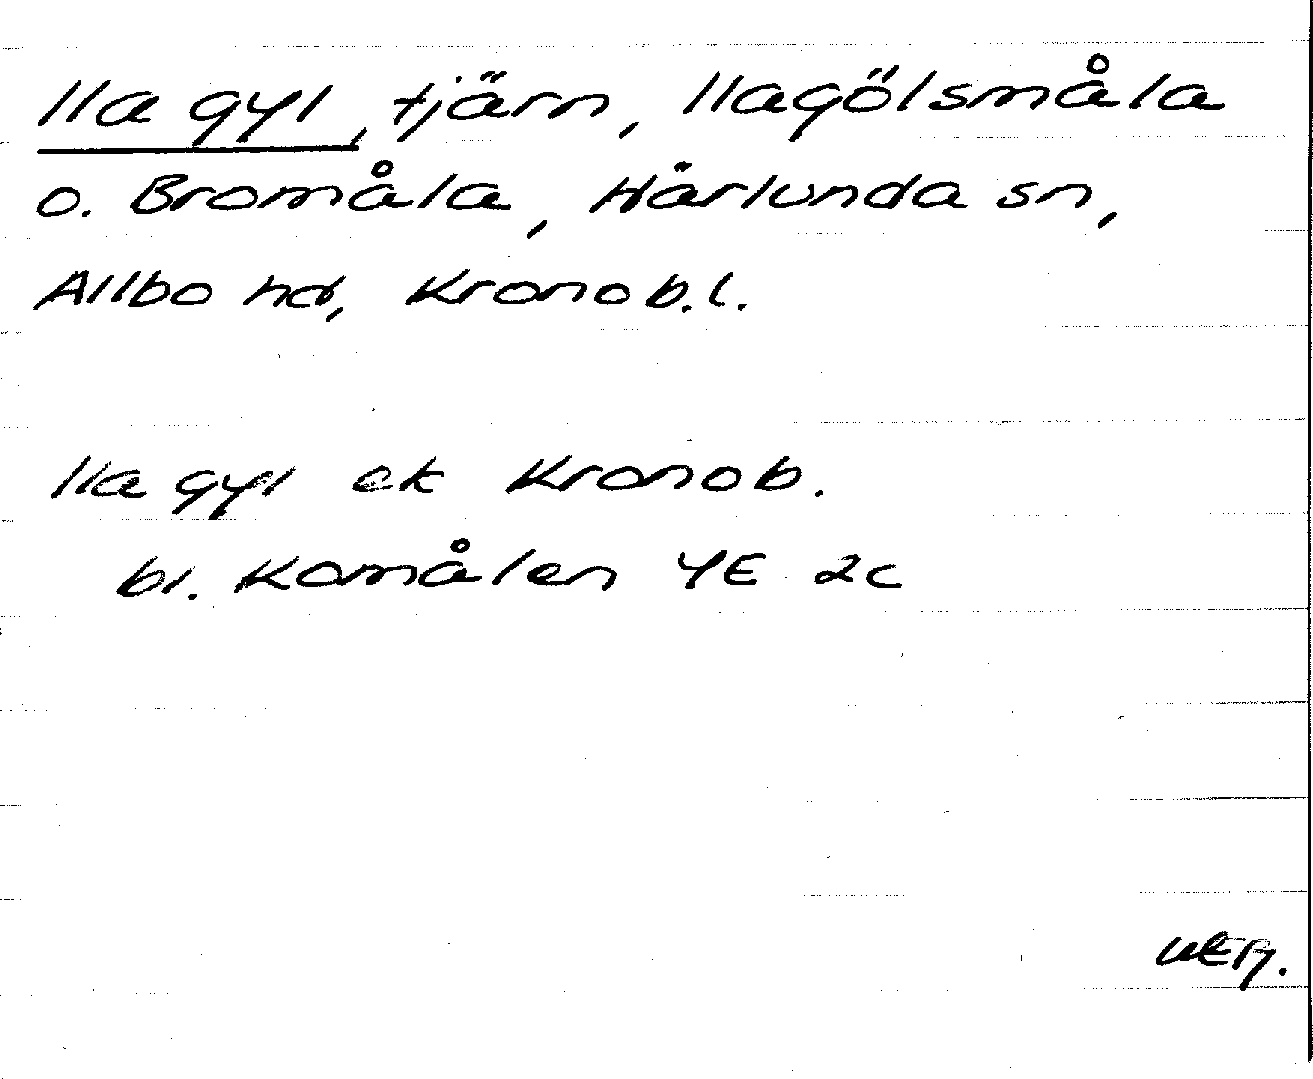 Ila gyl, tjärn, Ilagölsmåla
o. Bromåla, Härlunda sn,
Allbo hd, Kronob.l.
Ila gyl ek Kronob.
bl. Komålen 4E 2c